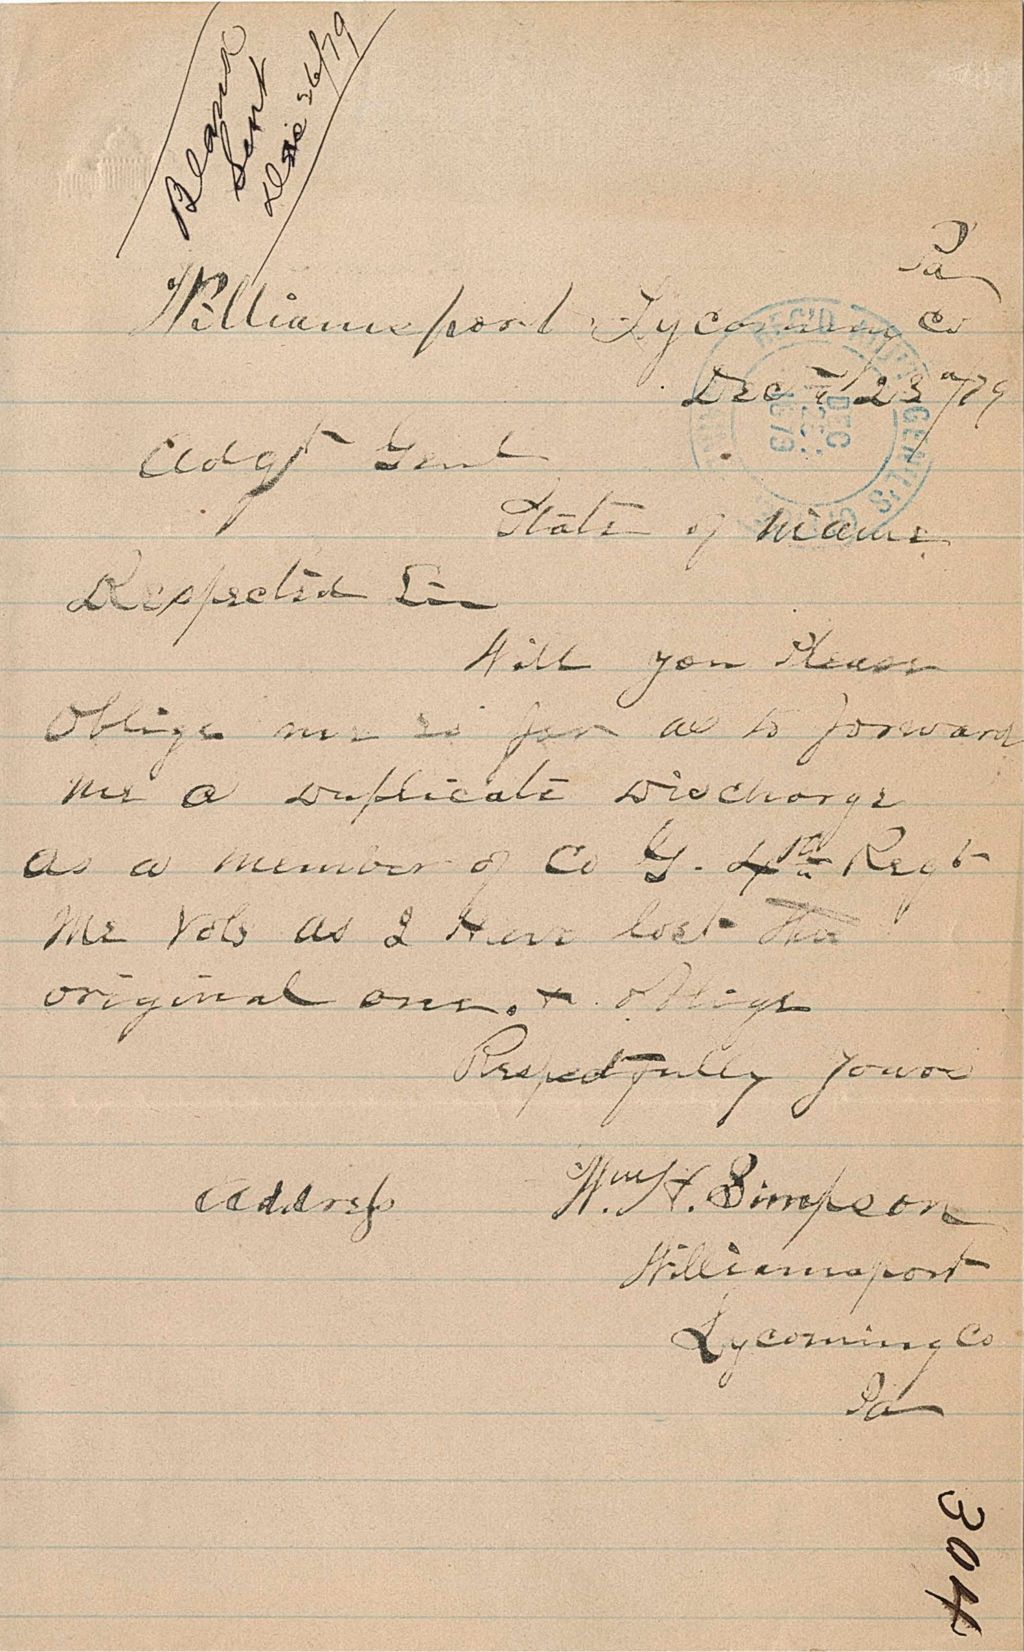 Blank
Sent
Dec 26/79
Pa
Williamsport Lycoming Co
Dec 23"/79
REC'D ADJT. GENL'S OFFICE
DEC
1879
Adgt Genl
State of Maine
Respected Sir
Will you Please
Oblige me so far as to forward
me a Duplicate Discharge
as a member of Co G. 4th Regt
Me Vols as I Have lost the
original one. & oblige
Respectfully Yours
Address Wm H. Simpson
Williamsport
Lycoming Co
Pa
304